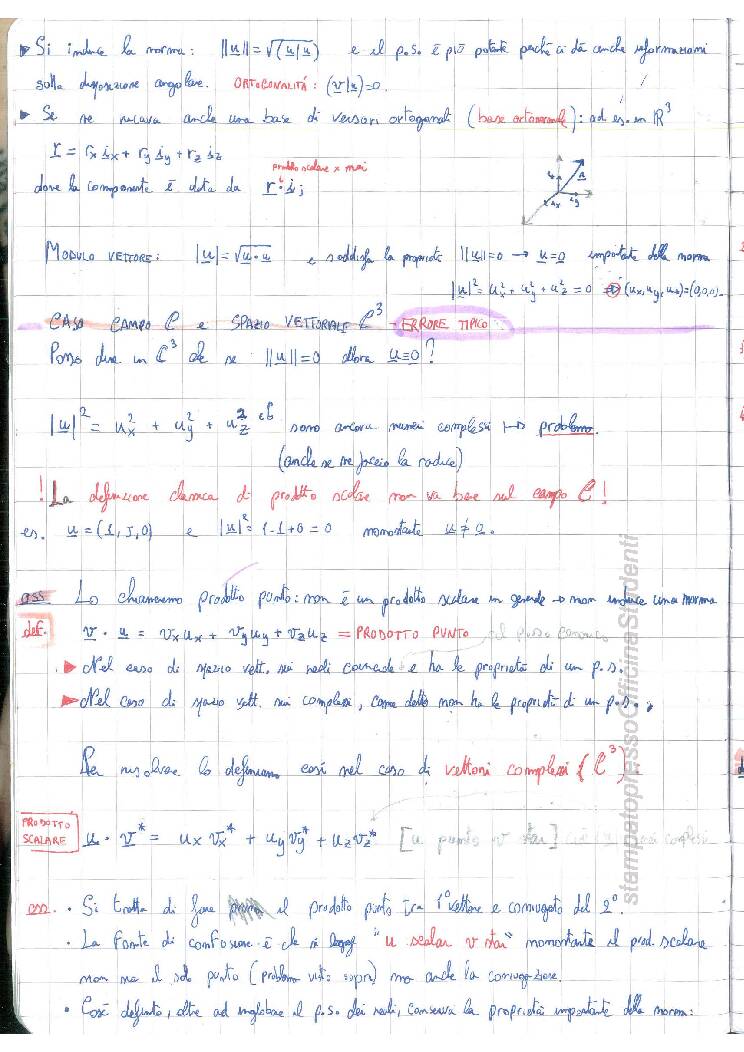 ▶ Si induce la norma: ||u|| = √(u|u) e il p.s. è più potente perché ci dà anche informazioni
sulla disposizione angolare. ORTOGONALITÁ: (v|u)=0.
▶ Se ne ricava anche una base di versori ortogonali (base ortonormale): ad es. in R³
r = rx ix + ry iy + rz iz
prodotto scalare x
dove la componente è data da r · ij
MODULO VETTORE: |u| = √u · u e soddisfa la proprietà ||u||=0 → u=0 importante della norma
|u|² = ux² + uy² + uz² = 0 ⇒ (ux, uy, uz)=(0,0,0).
CASO CAMPO C e SPAZIO VETTORIALE C³ - ERRORE TIPICO
Posso dire in C³ che se ||u||=0 allora u=0?
|u|² = ux² + uy² + uz² sono ancora numeri complessi ↦ problema.
(anche se ne faccio la radice)
! La definizione classica di prodotto scalare non va bene sul campo C!
es. u = (1, J, 0) e |u|² = 1-1+0 = 0 nonostante u ≠ 0.
oss Lo chiameremo prodotto punto: non è un prodotto scalare in generale → non induce una norma
def. v · u = vxux + vyuy + vzuz = PRODOTTO PUNTO
▶ Nel caso di spazio vett. sui reali coincide e ha le proprietà di un p.s.
▶ Nel caso di spazio vett. sui complessi, come detto non ha le proprietà di un p.s.
Per risolvere lo definiamo così nel caso di vettori complessi (C³)
PRODOTTO
SCALARE u · v* = ux vx* + uy vy* + uz vz* [u punto v star]
oss. • Si tratta di fare il prodotto punto tra 1° vettore e coniugato del 2°.
• La fonte di confusione è che si legge "u scalar v star" nonostante il prod. scalare
non sia il solo punto (problema visto sopra) ma anche la coniugazione.
• Così definito, oltre ad inglobare il p.s. dei reali, conserva la proprietà importante della norma:
stampatopressoOfficinaStudenti